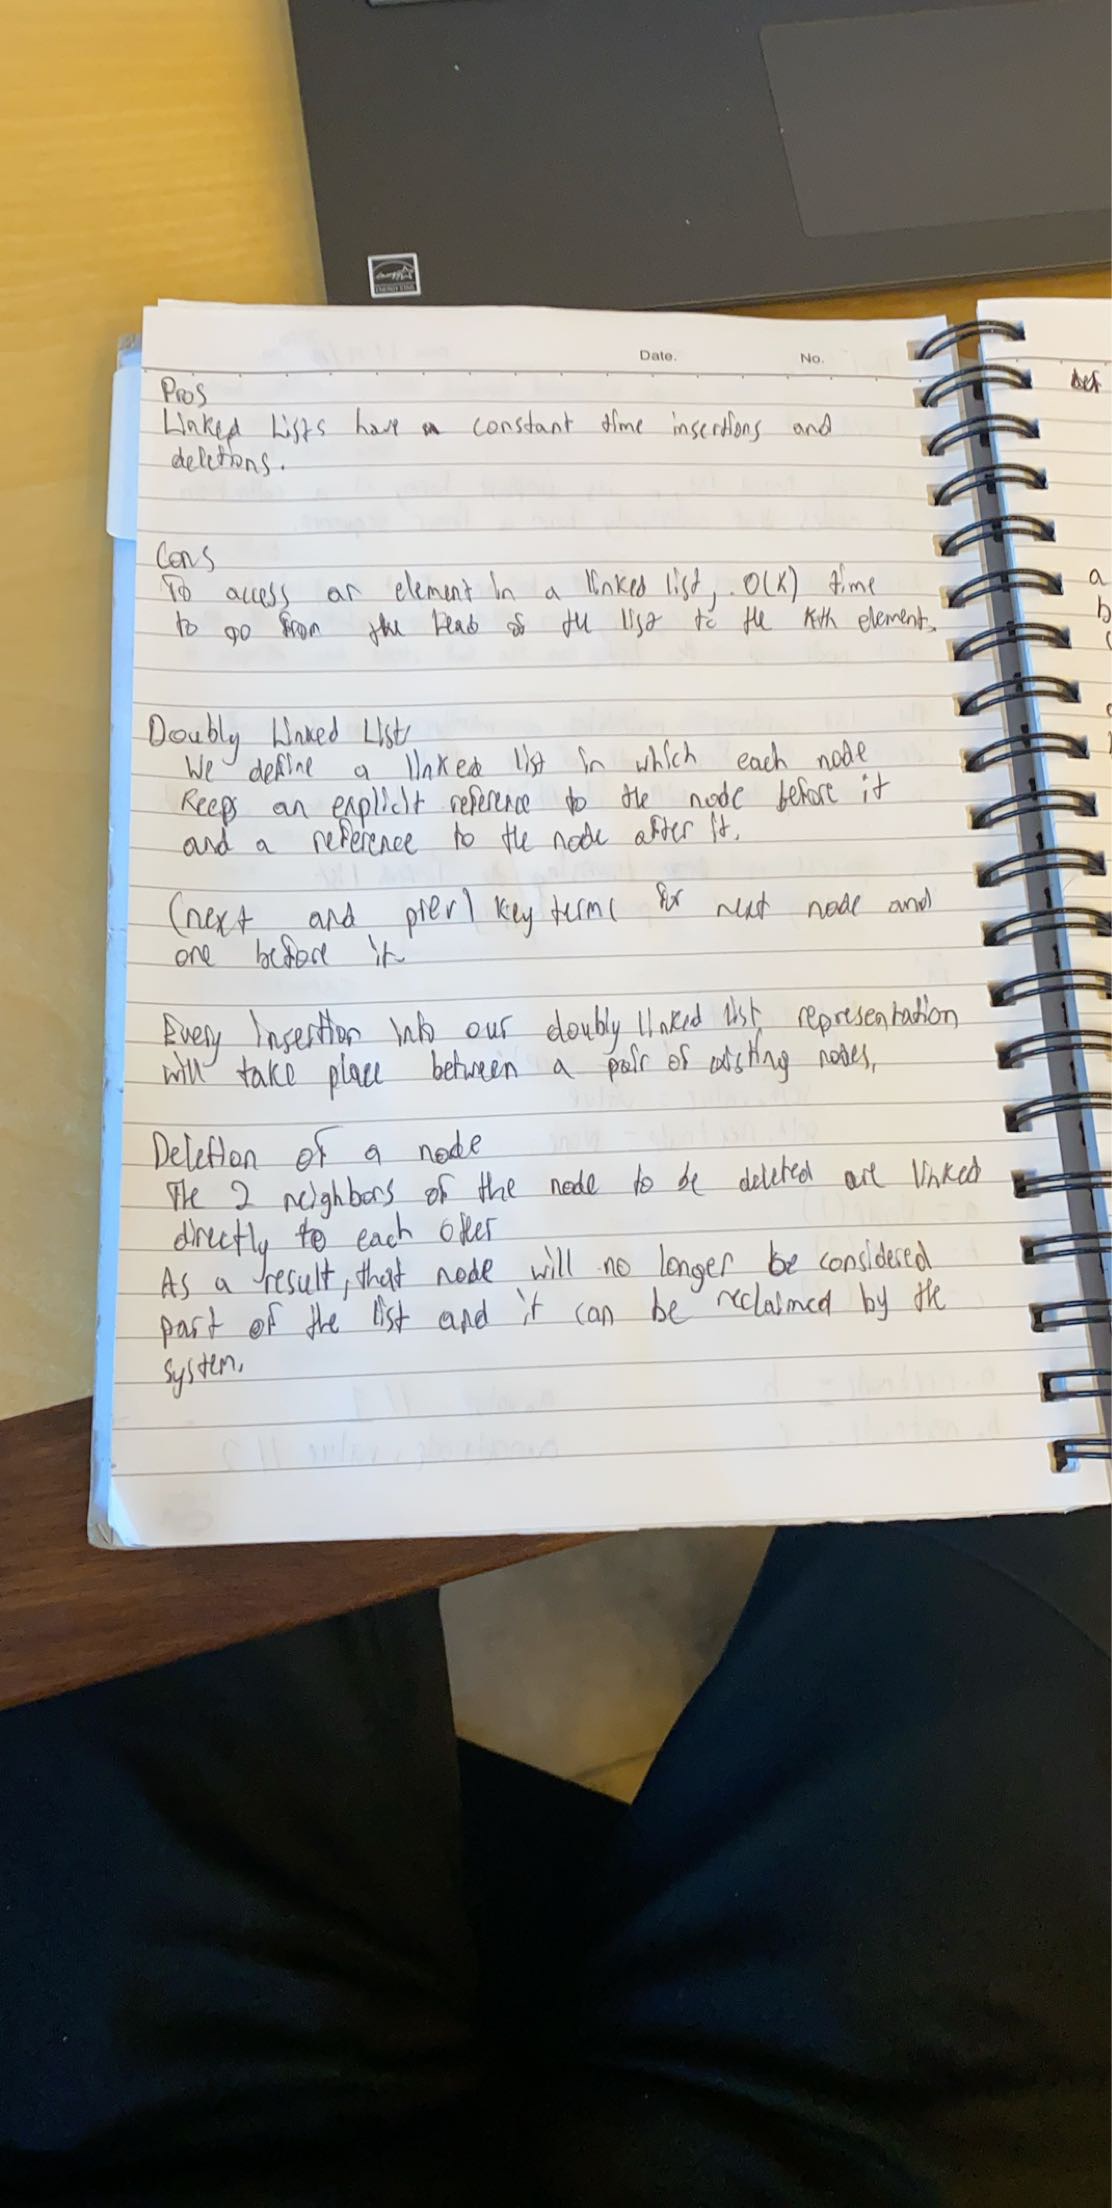 Date. No.
Pros
Linked Lists have a constant time insertions and
deletions.
Cons
To access an element in a linked list, O(K) time
to go from the head of the list to the Kth element.
Doubly Linked List
We define a linked list in which each node
Keeps an explicit reference to the node before it
and a reference to the node after it.
(next and prev) key terms for next node and
one before it
Every insertion into our doubly linked list representation
will take place between a pair of existing nodes,
Deletion of a node
The 2 neighbors of the node to be deleted are linked
directly to each other
As a result, that node will no longer be considered
part of the list and it can be reclaimed by the
system.
def
a
b
ENERGY STAR